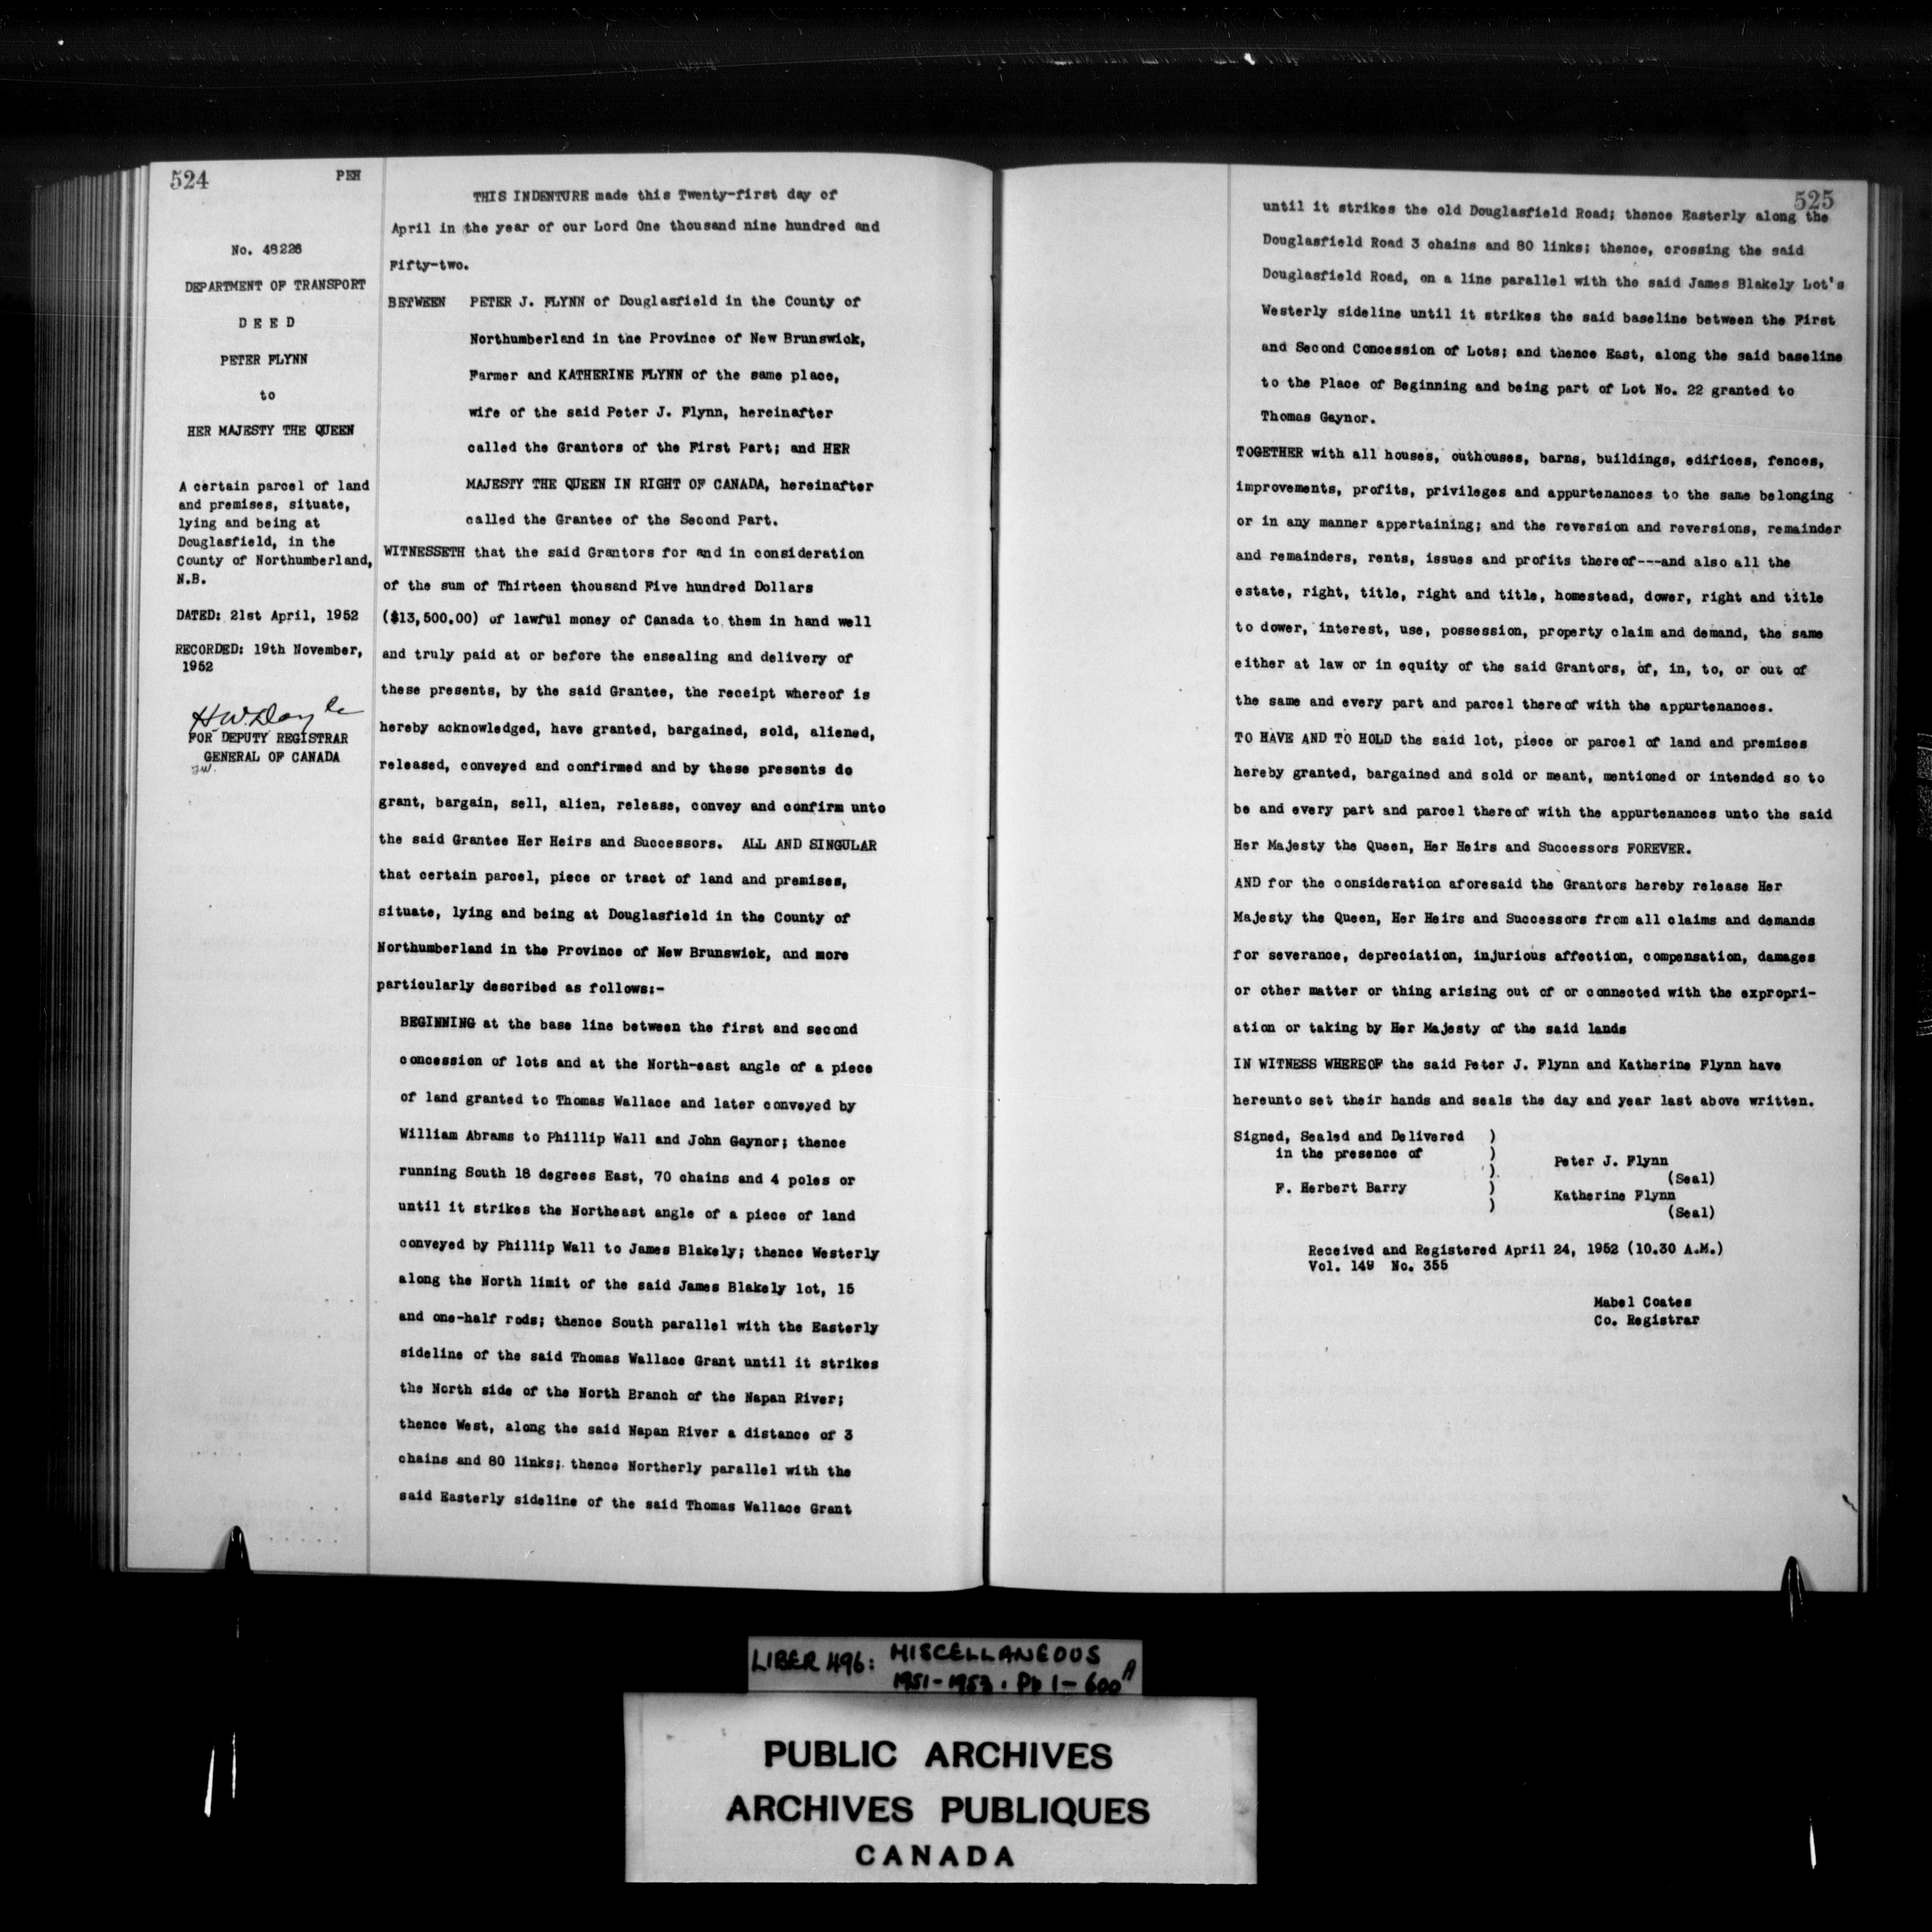 524
PEH
No. 48226
DEPARTMENT OF TRANSPORT
D E E D
PETER FLYNN
to
HER MAJESTY THE QUEEN
A certain parcel of land
and premises, situate,
lying and being at
Douglasfield, in the
County of Northumberland,
N.B.
DATED: 21st April, 1952
RECORDED: 19th November,
1952
H.W. Doyle
FOR DEPUTY REGISTRAR
GENERAL OF CANADA
THIS INDENTURE made this Twenty-first day of
April in the year of our Lord One thousand nine hundred and
Fifty-two.
BETWEEN PETER J. FLYNN of Douglasfield in the County of
Northumberland in the Province of New Brunswick,
Farmer and KATHERINE FLYNN of the same place,
wife of the said Peter J. Flynn, hereinafter
called the Grantors of the First Part; and HER
MAJESTY THE QUEEN IN RIGHT OF CANADA, hereinafter
called the Grantee of the Second Part.
WITNESSETH that the said Grantors for and in consideration
of the sum of Thirteen thousand Five hundred Dollars
($13,500.00) of lawful money of Canada to them in hand well
and truly paid at or before the ensealing and delivery of
these presents, by the said Grantee, the receipt whereof is
hereby acknowledged, have granted, bargained, sold, aliened,
released, conveyed and confirmed and by these presents do
grant, bargain, sell, alien, release, convey and confirm unto
the said Grantee Her Heirs and Successors. ALL AND SINGULAR
that certain parcel, piece or tract of land and premises,
situate, lying and being at Douglasfield in the County of
Northumberland in the Province of New Brunswick, and more
particularly described as follows:-
BEGINNING at the base line between the first and second
concession of lots and at the North-east angle of a piece
of land granted to Thomas Wallace and later conveyed by
William Abrams to Phillip Wall and John Gaynor; thence
running South 18 degrees East, 70 chains and 4 poles or
until it strikes the Northeast angle of a piece of land
conveyed by Phillip Wall to James Blakely; thence Westerly
along the North limit of the said James Blakely lot, 15
and one-half rods; thence South parallel with the Easterly
sideline of the said Thomas Wallace Grant until it strikes
the North side of the North Branch of the Napan River;
thence West, along the said Napan River a distance of 3
chains and 80 links; thence Northerly parallel with the
said Easterly sideline of the said Thomas Wallace Grant
525
until it strikes the old Douglasfield Road; thence Easterly along the
Douglasfield Road 3 chains and 80 links; thence, crossing the said
Douglasfield Road, on a line parallel with the said James Blakely Lot's
Westerly sideline until it strikes the said baseline between the First
and Second Concession of Lots; and thence East, along the said baseline
to the Place of Beginning and being part of Lot No. 22 granted to
Thomas Gaynor.
TOGETHER with all houses, outhouses, barns, buildings, edifices, fences,
improvements, profits, privileges and appurtenances to the same belonging
or in any manner appertaining; and the reversion and reversions, remainder
and remainders, rents, issues and profits thereof---and also all the
estate, right, title, right and title, homestead, dower, right and title
to dower, interest, use, possession, property claim and demand, the same
either at law or in equity of the said Grantors, of, in, to, or out of
the same and every part and parcel thereof with the appurtenances.
TO HAVE AND TO HOLD the said lot, piece or parcel of land and premises
hereby granted, bargained and sold or meant, mentioned or intended so to
be and every part and parcel thereof with the appurtenances unto the said
Her Majesty the Queen, Her Heirs and Successors FOREVER.
AND for the consideration aforesaid the Grantors hereby release Her
Majesty the Queen, Her Heirs and Successors from all claims and demands
for severance, depreciation, injurious affection, compensation, damages
or other matter or thing arising out of or connected with the expropri-
ation or taking by Her Majesty of the said lands
IN WITNESS WHEREOF the said Peter J. Flynn and Katherine Flynn have
hereunto set their hands and seals the day and year last above written.
Signed, Sealed and Delivered )
in the presence of )
) Peter J. Flynn
(Seal)
F. Herbert Barry ) Katherine Flynn
) (Seal)
Received and Registered April 24, 1952 (10.30 A.M.)
Vol. 149 No. 355
Mabel Coates
Co. Registrar
LIBER 496: MISCELLANEOUS
1951-1953. Pp 1-600A
PUBLIC ARCHIVES
ARCHIVES PUBLIQUES
CANADA